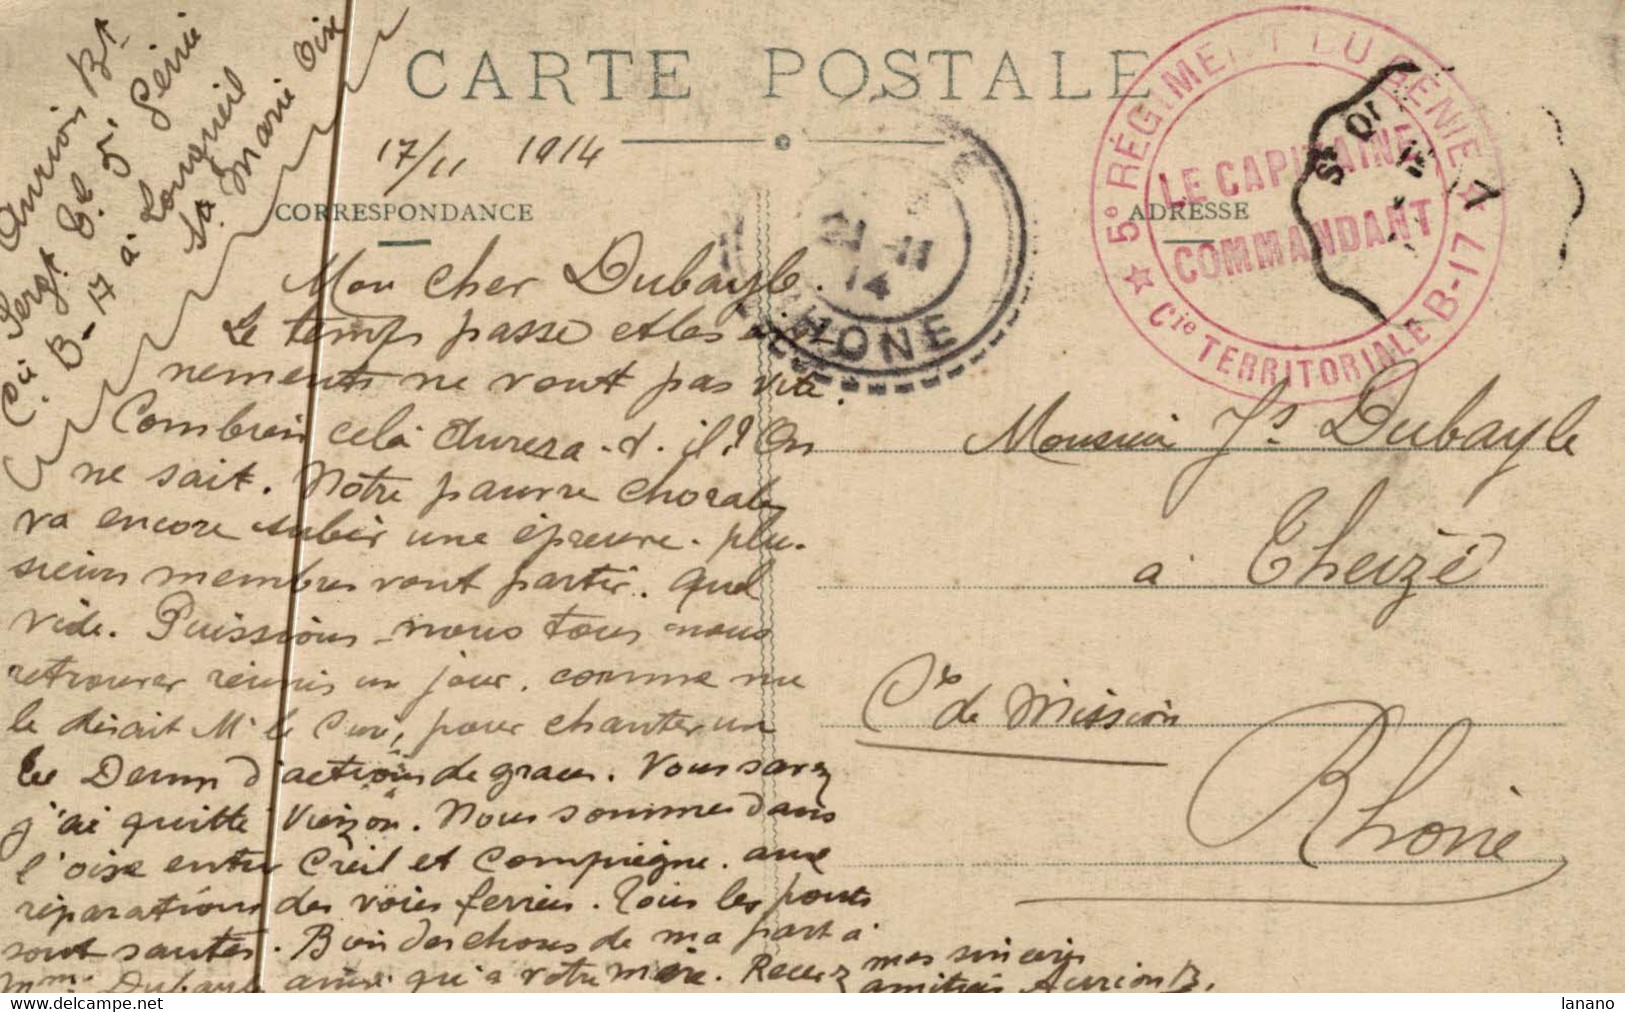 CARTE POSTALE
17/11 1914
CORRESPONDANCE
ADRESSE
Aurion Bt
Sergt Bl 5e Génie
Cie B-17 à Longueil
Ste Marie Oise
Mon cher Dubayle.
Le temps passe et les évè
nements ne vont pas vite.
Combien celà durera-t-il? On
ne sait. Notre pauvre chorale
va encore subir une épreuve. plu-
sieurs membres vont partir. Quel
vide. Puissions-nous tous nous
retrouver réunis un jour. comme me
le disait Mr le Curé, pour chanter un
te Deum d'actions de graces. Vous savez
j'ai quitté Vierzon. Nous sommes dans
l'oise entre Creil et Compiègne. aux
réparations des voies ferrées. Tous les ponts
sont sautés. Bien des choses de ma part à
Mme Dubayle ainsi qu'à votre mère. Recevez mes sincères
amitiés Aurion B.
21-11
14
RHONE
5e RÉGIMENT DU GÉNIE
LE CAPITAINE
COMMANDANT
Cie TERRITORIALE B-17
Monsieur Js Dubayle
à Theizé
Ce de Mission
Rhone
delcampe.net
lanano